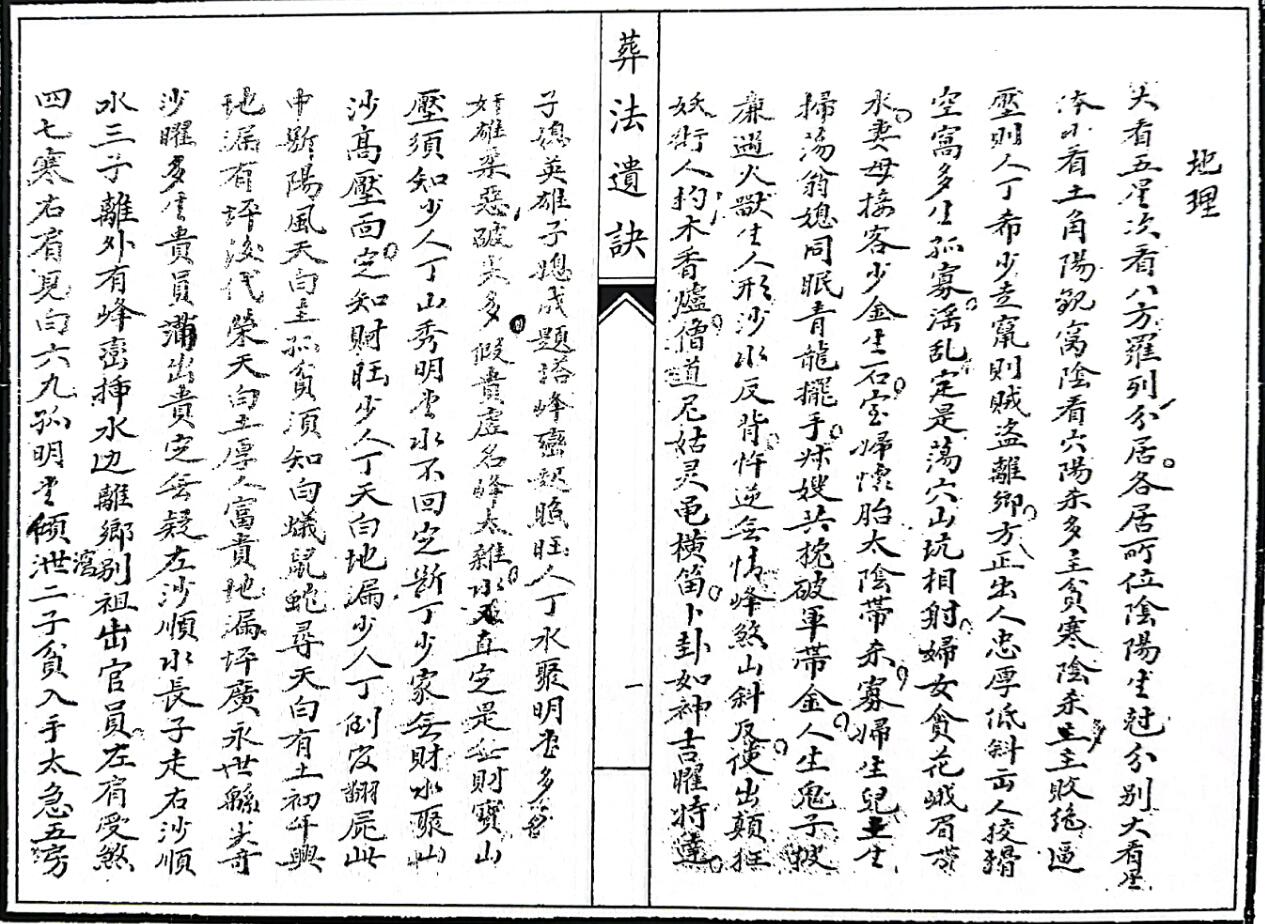 地理
大看五星次看八方羅列分居各居所位陰陽生尅分别大看星
体小看土角陽龍窩陰看穴陽杀多主貧寒陰杀多主敗絶逼
壓則人丁希少走竄則賊盗離鄉方正出人忠厚低斜出人狡猾
空窩多生孤寡淫乱定是蕩穴山坑相射婦女貪花峨眉帶
水妻母接客少金生石室婦懷胎太陰帶杀寡婦生兒生
掃蕩翁媳同眠青龍擺手妹嫂共撓破軍帶金人生鬼子披
廉過火獸生人形沙水反背忤逆無情峰煞山斜反便出顛狂
妖術人杓木香爐僧道尼姑灵龟横笛卜卦如神吉曜特達
葬法遺訣
一
子媳英雄子媳成題路峰巒親照旺人丁水聚明堂多
奸雄梁惡破尖多假貴虛名峰太雜水直定是無財寶山
壓須知少人丁山秀明堂水不回定斷丁少家無財水聚山
沙高壓面定知財旺少人丁天白地漏少人丁倒沒翻屍此
中斷陽風天白主孤貧須知白蟻鼠蛇尋天白有土初年興
地漏有坪後代榮天白主厚人富貴地漏坪廣永世縣尖奇
沙曜多生貴員滿出貴定無疑左沙順水長子走右沙順
水三子離外有峰巒揷水边離鄉别祖出官員左肩受煞
四七寒右肩見白六九孤明堂傾泄瀉二子貧入手太急五房